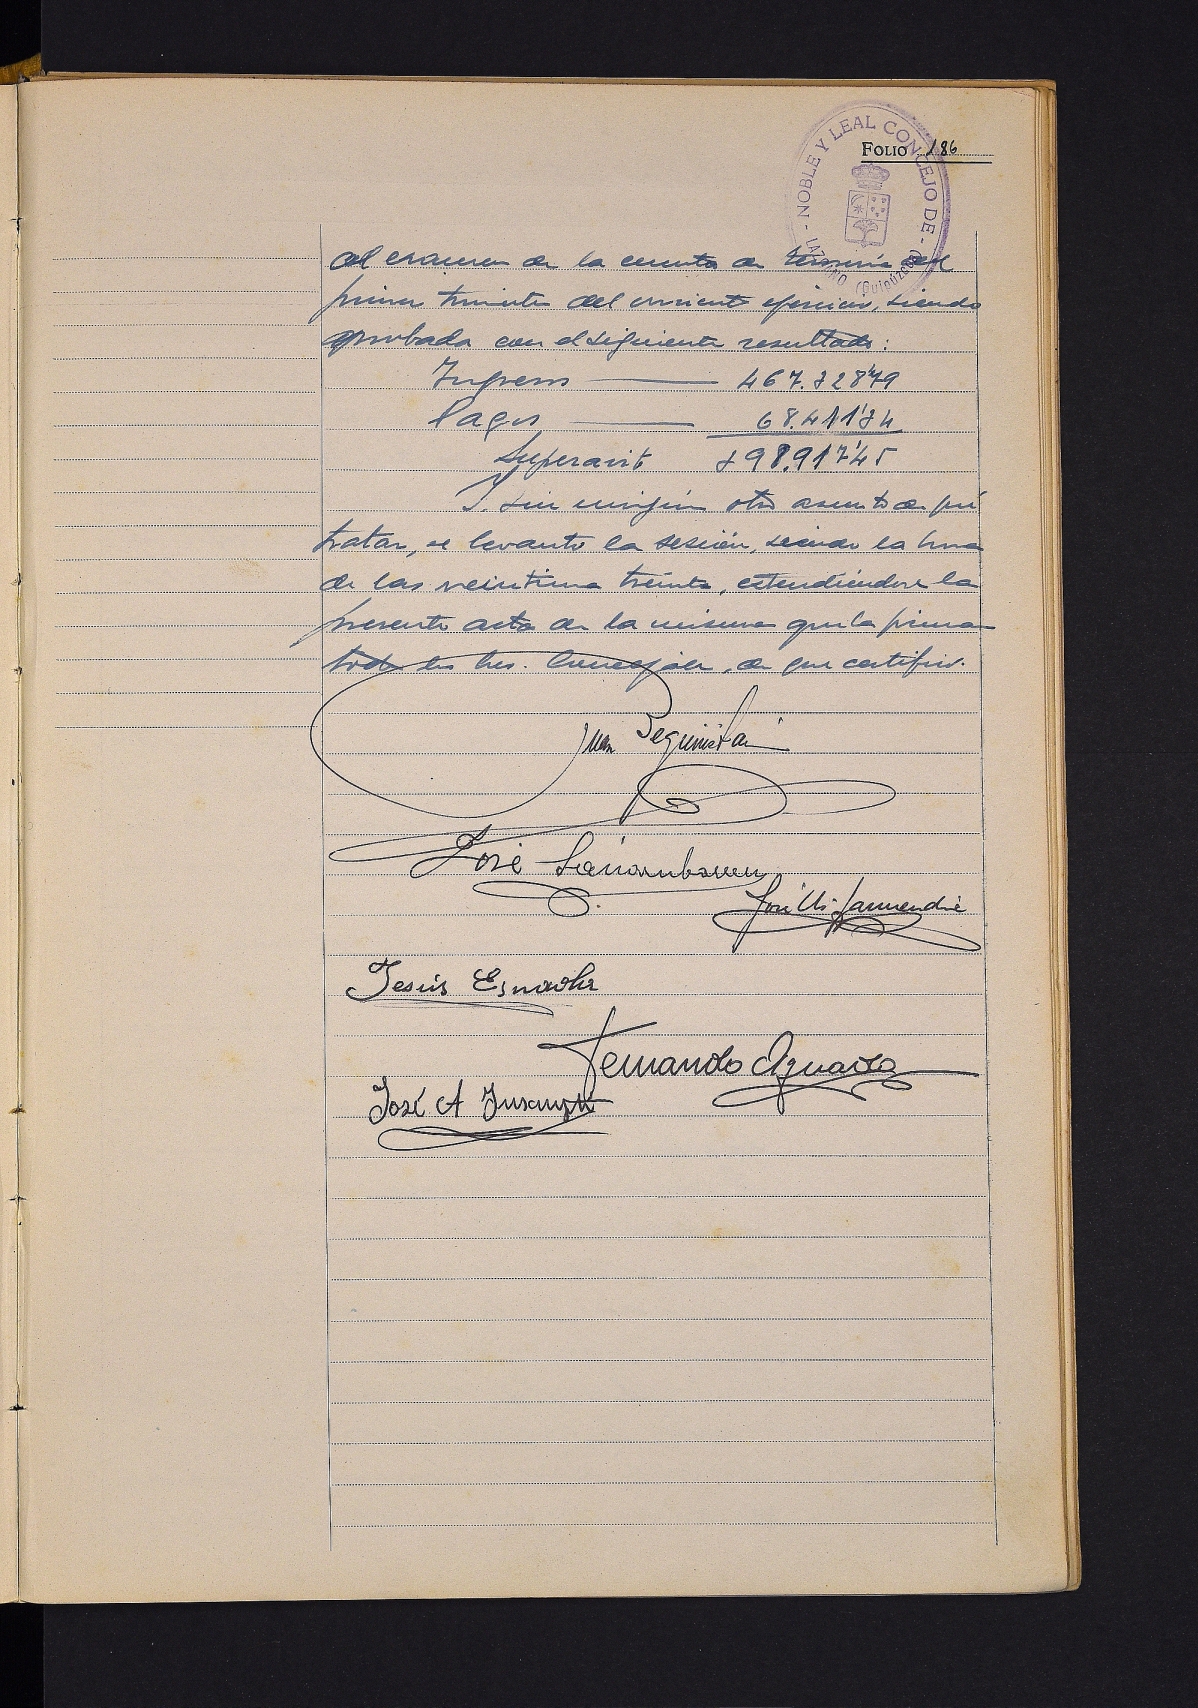 NOBLE Y LEAL CONCEJO DE
LAZCANO (Guipúzcoa)
FOLIO 186
al examen de la cuenta de tesorería del
primer trimestre del corriente ejercicio, siendo
aprobada con el siguiente resultado:
Ingresos — 467.328'79
Pagos — 68.411'34
Superavit 398.917'45
Y sin ningún otro asunto de que
tratar, se levanto la sesión, siendo la hora
de las veintiuna treinta, extendiéndose la
presente acta de la misma que la firman
todos los Sres. Concejales, de que certifico.
Juan Beguiristain
José
José
Jesús Esnaola
Fernando Aguado
José A